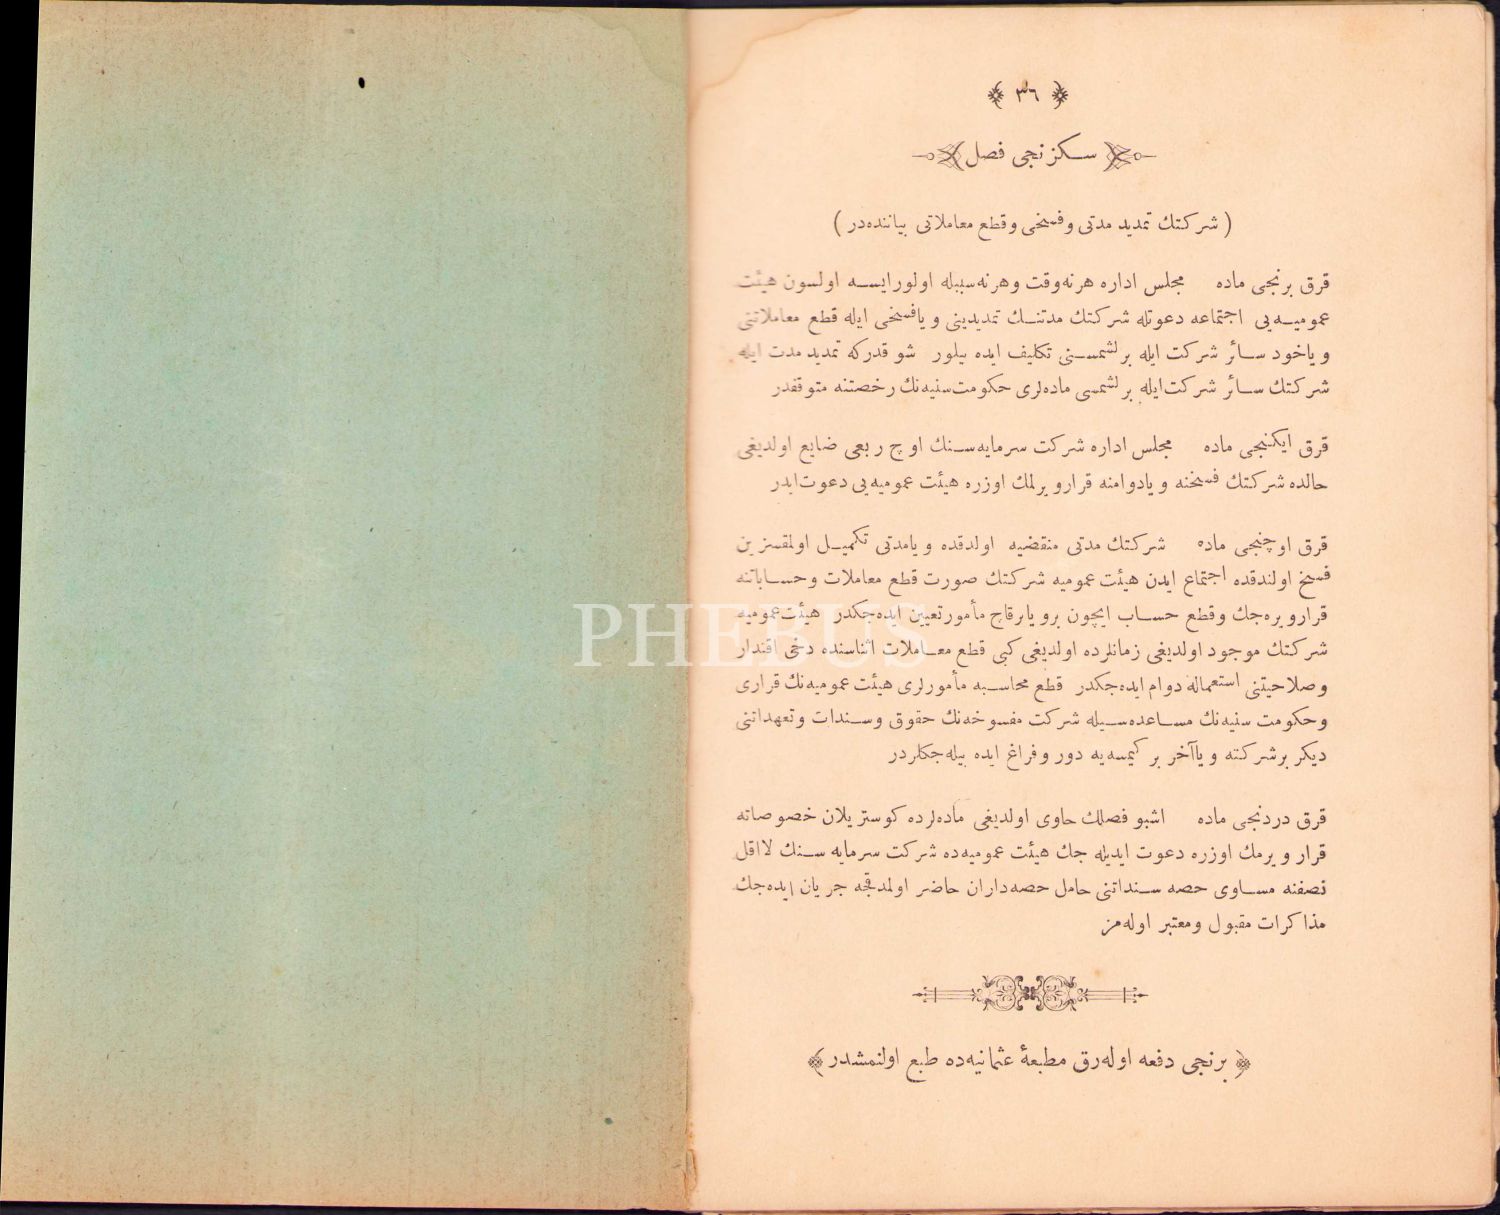 ٣٦
سكزنجی فصل
( شركتك تمدید مدتی وفسخی وقطع معاملاتی بیاننده‌در )
قرق برنجی ماده مجلس اداره هرنه‌وقت وهرنه‌سببله اولورایسه اولسون هیئت
عمومیه‌یی اجتماعه دعوتله شركتك مدتنك تمدیدینی ویافسخی ایله قطع معاملاتنی
ویاخود سائر شركت ایله برلشمسنی تكلیف ایده بیلور شو قدركه تمدید مدت ایله
شركتك سائر شركت‌ایله برلشمسی ماده‌لری حكومت‌سنیه‌نك رخصتنه متوقفدر
قرق ایكنجی ماده مجلس اداره شركت سرمایه‌سنك اوچ ربعی ضایع اولدیغی
حالده شركتك فسخنه ویادوامنه قرارویرلمك اوزره هیئت عمومیه‌یی دعوت‌ایدر
قرق اوچنجی ماده شركتك مدتی منقضیه اولدقده ویامدتی تكمیل اولمقسزین
فسخ اولندقده اجتماع ایدن هیئت عمومیه شركتك صورت قطع معاملات وحساباتنه
قرارویره‌جك وقطع حساب ایچون برویابرقاچ مأمورتعیین ایده‌جكدر هیئت‌عمومیه
شركتك موجود اولدیغی زمانلرده اولدیغی كبی قطع معاملات اثناسنده دخی اقتدار
وصلاحیتنی استعماله دوام ایده‌جكدر قطع محاسبه مأمورلری هیئت عمومیه‌نك قراری
وحكومت سنیه‌نك مساعده‌سیله شركت مفسوخه‌نك حقوق وسندات وتعهداتنی
دیكر برشركته ویاآخر بر كیمسه‌یه دور وفراغ ایده بیله‌جكلردر
قرق دردنجی ماده اشبو فصلك حاوی اولدیغی ماده‌لرده كوستریلان خصوصاته
قرار ویرمك اوزره دعوت ایدیله جك هیئت عمومیه‌ده شركت سرمایه سنك لااقل
نصفنه مساوی حصه سنداتنی حامل حصه‌داران حاضر اولمدقجه جریان ایده‌جك
مذاكرات مقبول ومعتبر اوله‌مز
برنجی دفعه اوله‌رق مطبعهٔ عثمانیه‌ده طبع اولنمشدر
PHEBUS